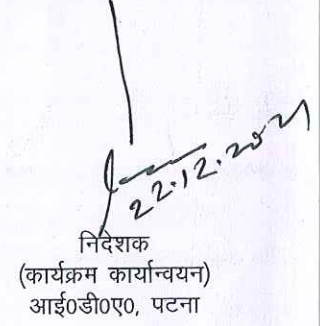 22.12.2021
निदेशक
(कार्यक्रम कार्यान्वयन)
आई0डी0ए0, पटना